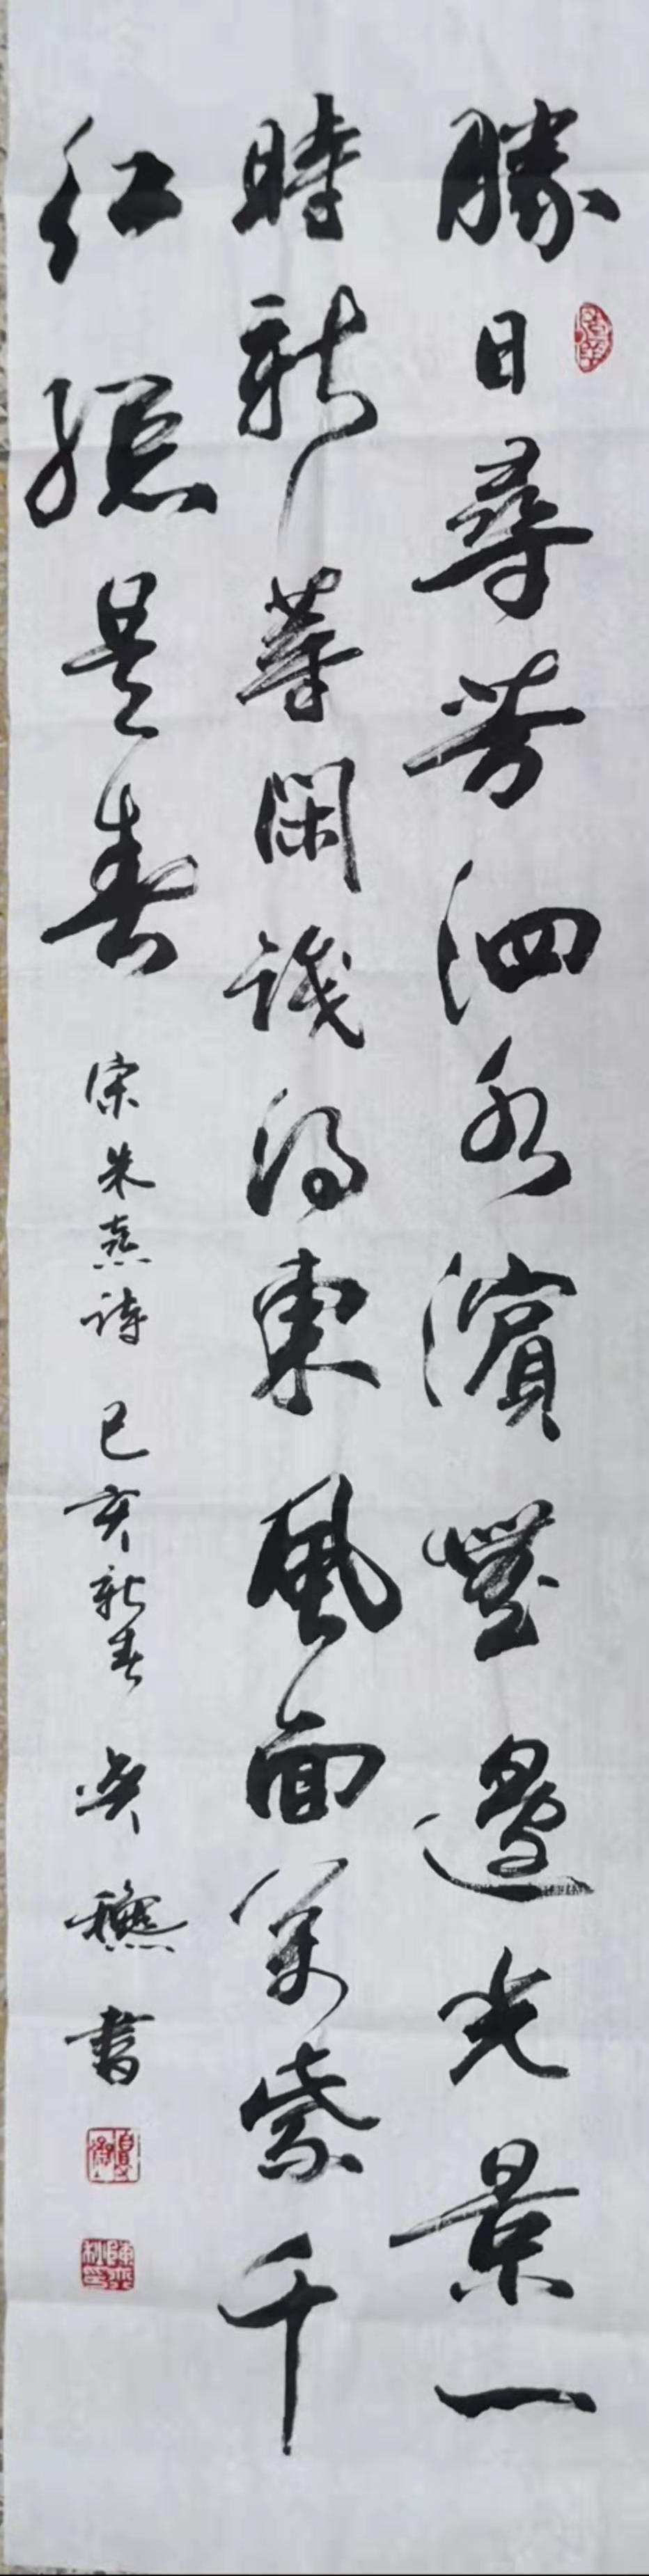 勝日尋芳泗水濱無邊光景一
時新等閑識得東風面萬紫千
紅總是春
宋朱熹詩 己亥新春 奕穐書